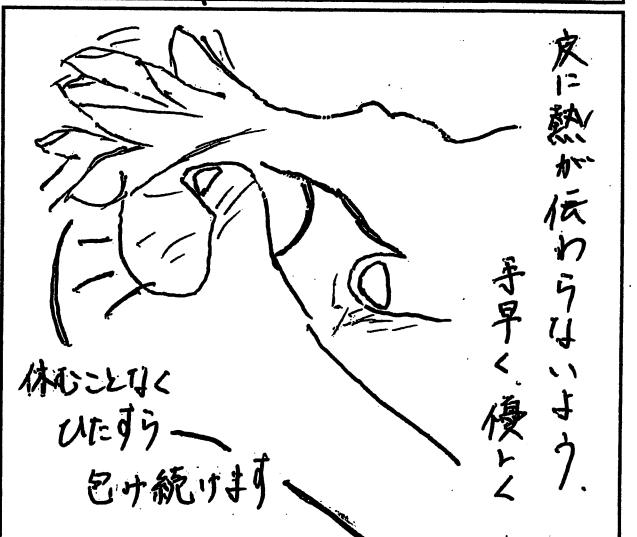 皮に熱が伝わらないよう、
手早く、優しく
休むことなく
ひたすら
包み続けます